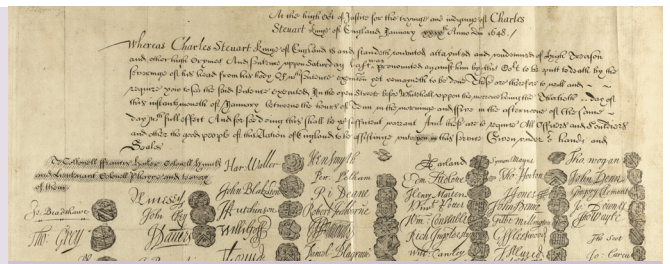 At the high Cort of Justice for the tryinge and iudginge of Charles
Steuart Kinge of England January xxixth Anno Dni 1648./
Whereas Charles Steuart Kinge of England is and standeth convicted attaynted and condemned of High Treason
and other high Crymes And sentence uppon Saturday last was pronounced against him by this Cort to be putt to death by the
severinge of his head from his body Of wch sentence execucon yet remayneth to be done These are therefore to will and
require you to see the said sentence executed In the open Streete before Whitehall uppon the morrowe being the Thirtieth day of
this instante moneth of January betweene the houres of Tenn in the morninge and Five in the afternoone of the same
day wth full effect And for soe doing this shall be yor sufficient warrant And these are to require All Officers and Souldiers
and other the good people of this Nation of England to be assistinge unto you in this service Given under or hands and
Seales
To Collonell Francis Hacker Collonell Huncks
and Lieutenant Colonell Phayre and to every
of them
Har Waller
Hen Smyth
Jo Bradshawe
Tho Grey
O Cromwell
John Blakiston
J Hutchinson
Willi Goff
Per Pelham
Ri Deane
Robert Tichborne
Edm Ludlowe
Henry Marten
Vinct Potter
Wm Constable
Rich Ingoldesby
Will Cawley
Symon Mayne
Tho Horton
J Jones
Gilbt Millington
G Fleetwood
J Alured
Tho Wogan
John Venn
Gregory Clement
Jo Downes
Tho Wayte
Tho Scot
Jo Carew